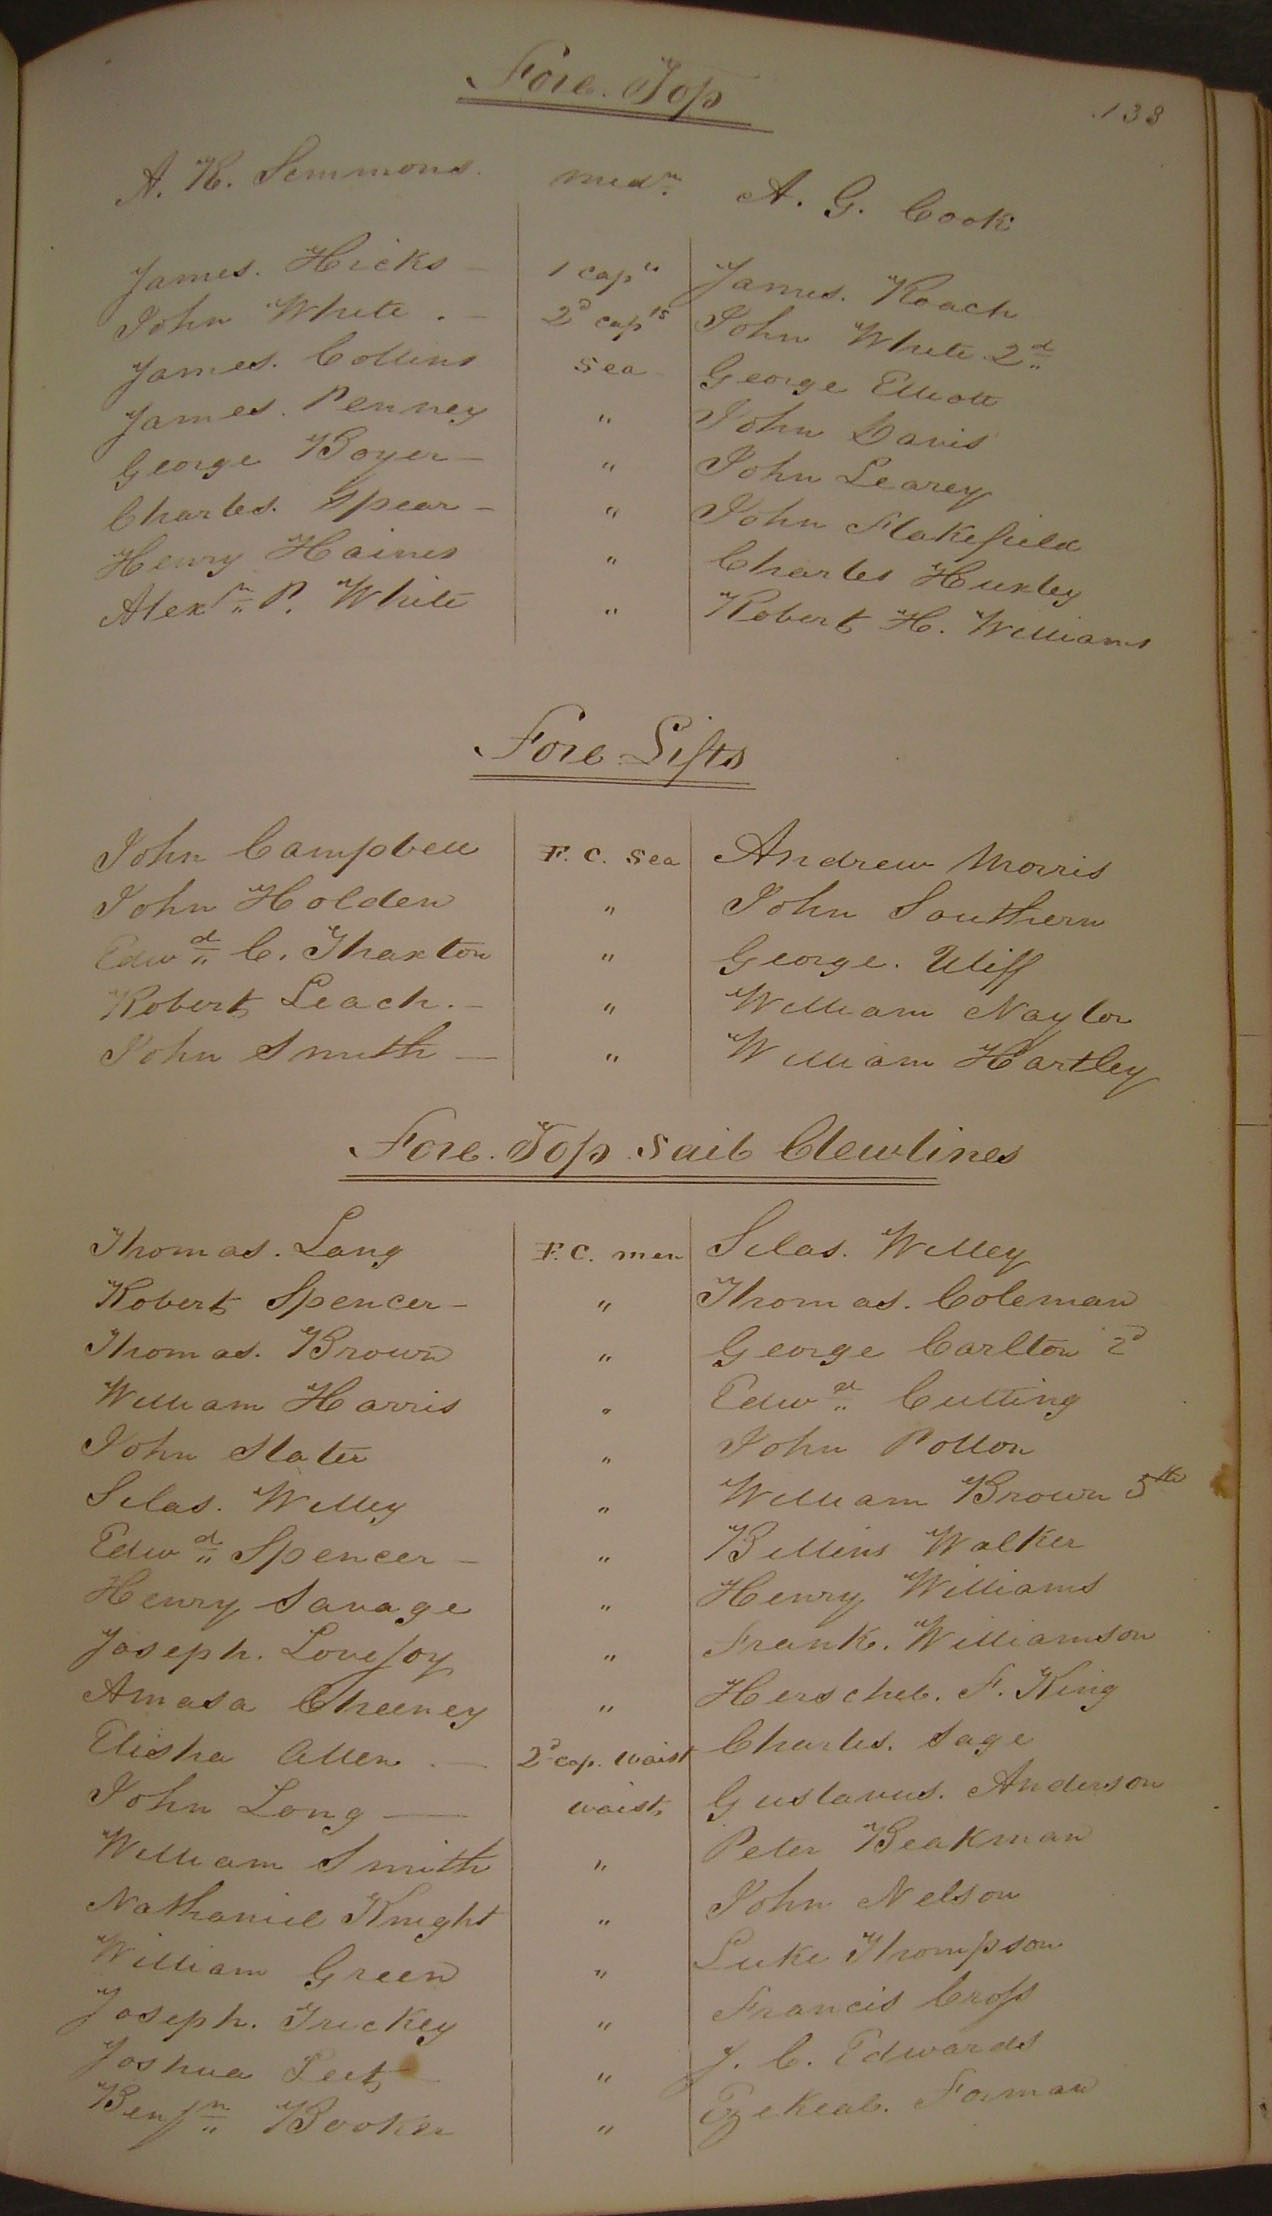 133
Fore. Top
A. K. Semmons. midn. A. G. Cook
James. Hicks — 1 cap" James. Roach
John White . — 2d capts John White 2d
James. Collins sea George Elliott
James. Penney " John Davis
George Boyer — " John Learey
Charles. Spear — " John Flakefield
Henry Haines " Charles Huxley
Alexr P. White " Robert H. Williams
Fore Lifts
John Campbell F. C. Sea Andrew Morris
John Holden " John Southern
Edwd C. Thaxton " George. Uliff
Robert Leach. — " William Naylor
John Smith — " William Hartley
Fore. Top Sail Clewlines
Thomas. Lang F. C. men Silas. Willey
Robert Spencer — " Thomas. Coleman
Thomas. Brown " George Carlton 2d
William Harris " Edwd Cutting
John Slater " John Pollon
Silas. Willey " William Brown 5th
Edwd Spencer — " Billins Walker
Henry Savage " Henry Williams
Joseph. Lovejoy " Frank. Williamson
Amasa Cheeney " Herschel. F. King
Elisha Allen. — 2d cap. waist Charles. Sage
John Long — waist Gustavus. Anderson
William Smith " Peter Beakman
Nathaniel Knight " John Nelson
William Green " Luke Thompson
Joseph. Truckey " Francis Cross
Joshua Peet — " J. C. Edwards
Benjn Booker " Ezekeal. Forman